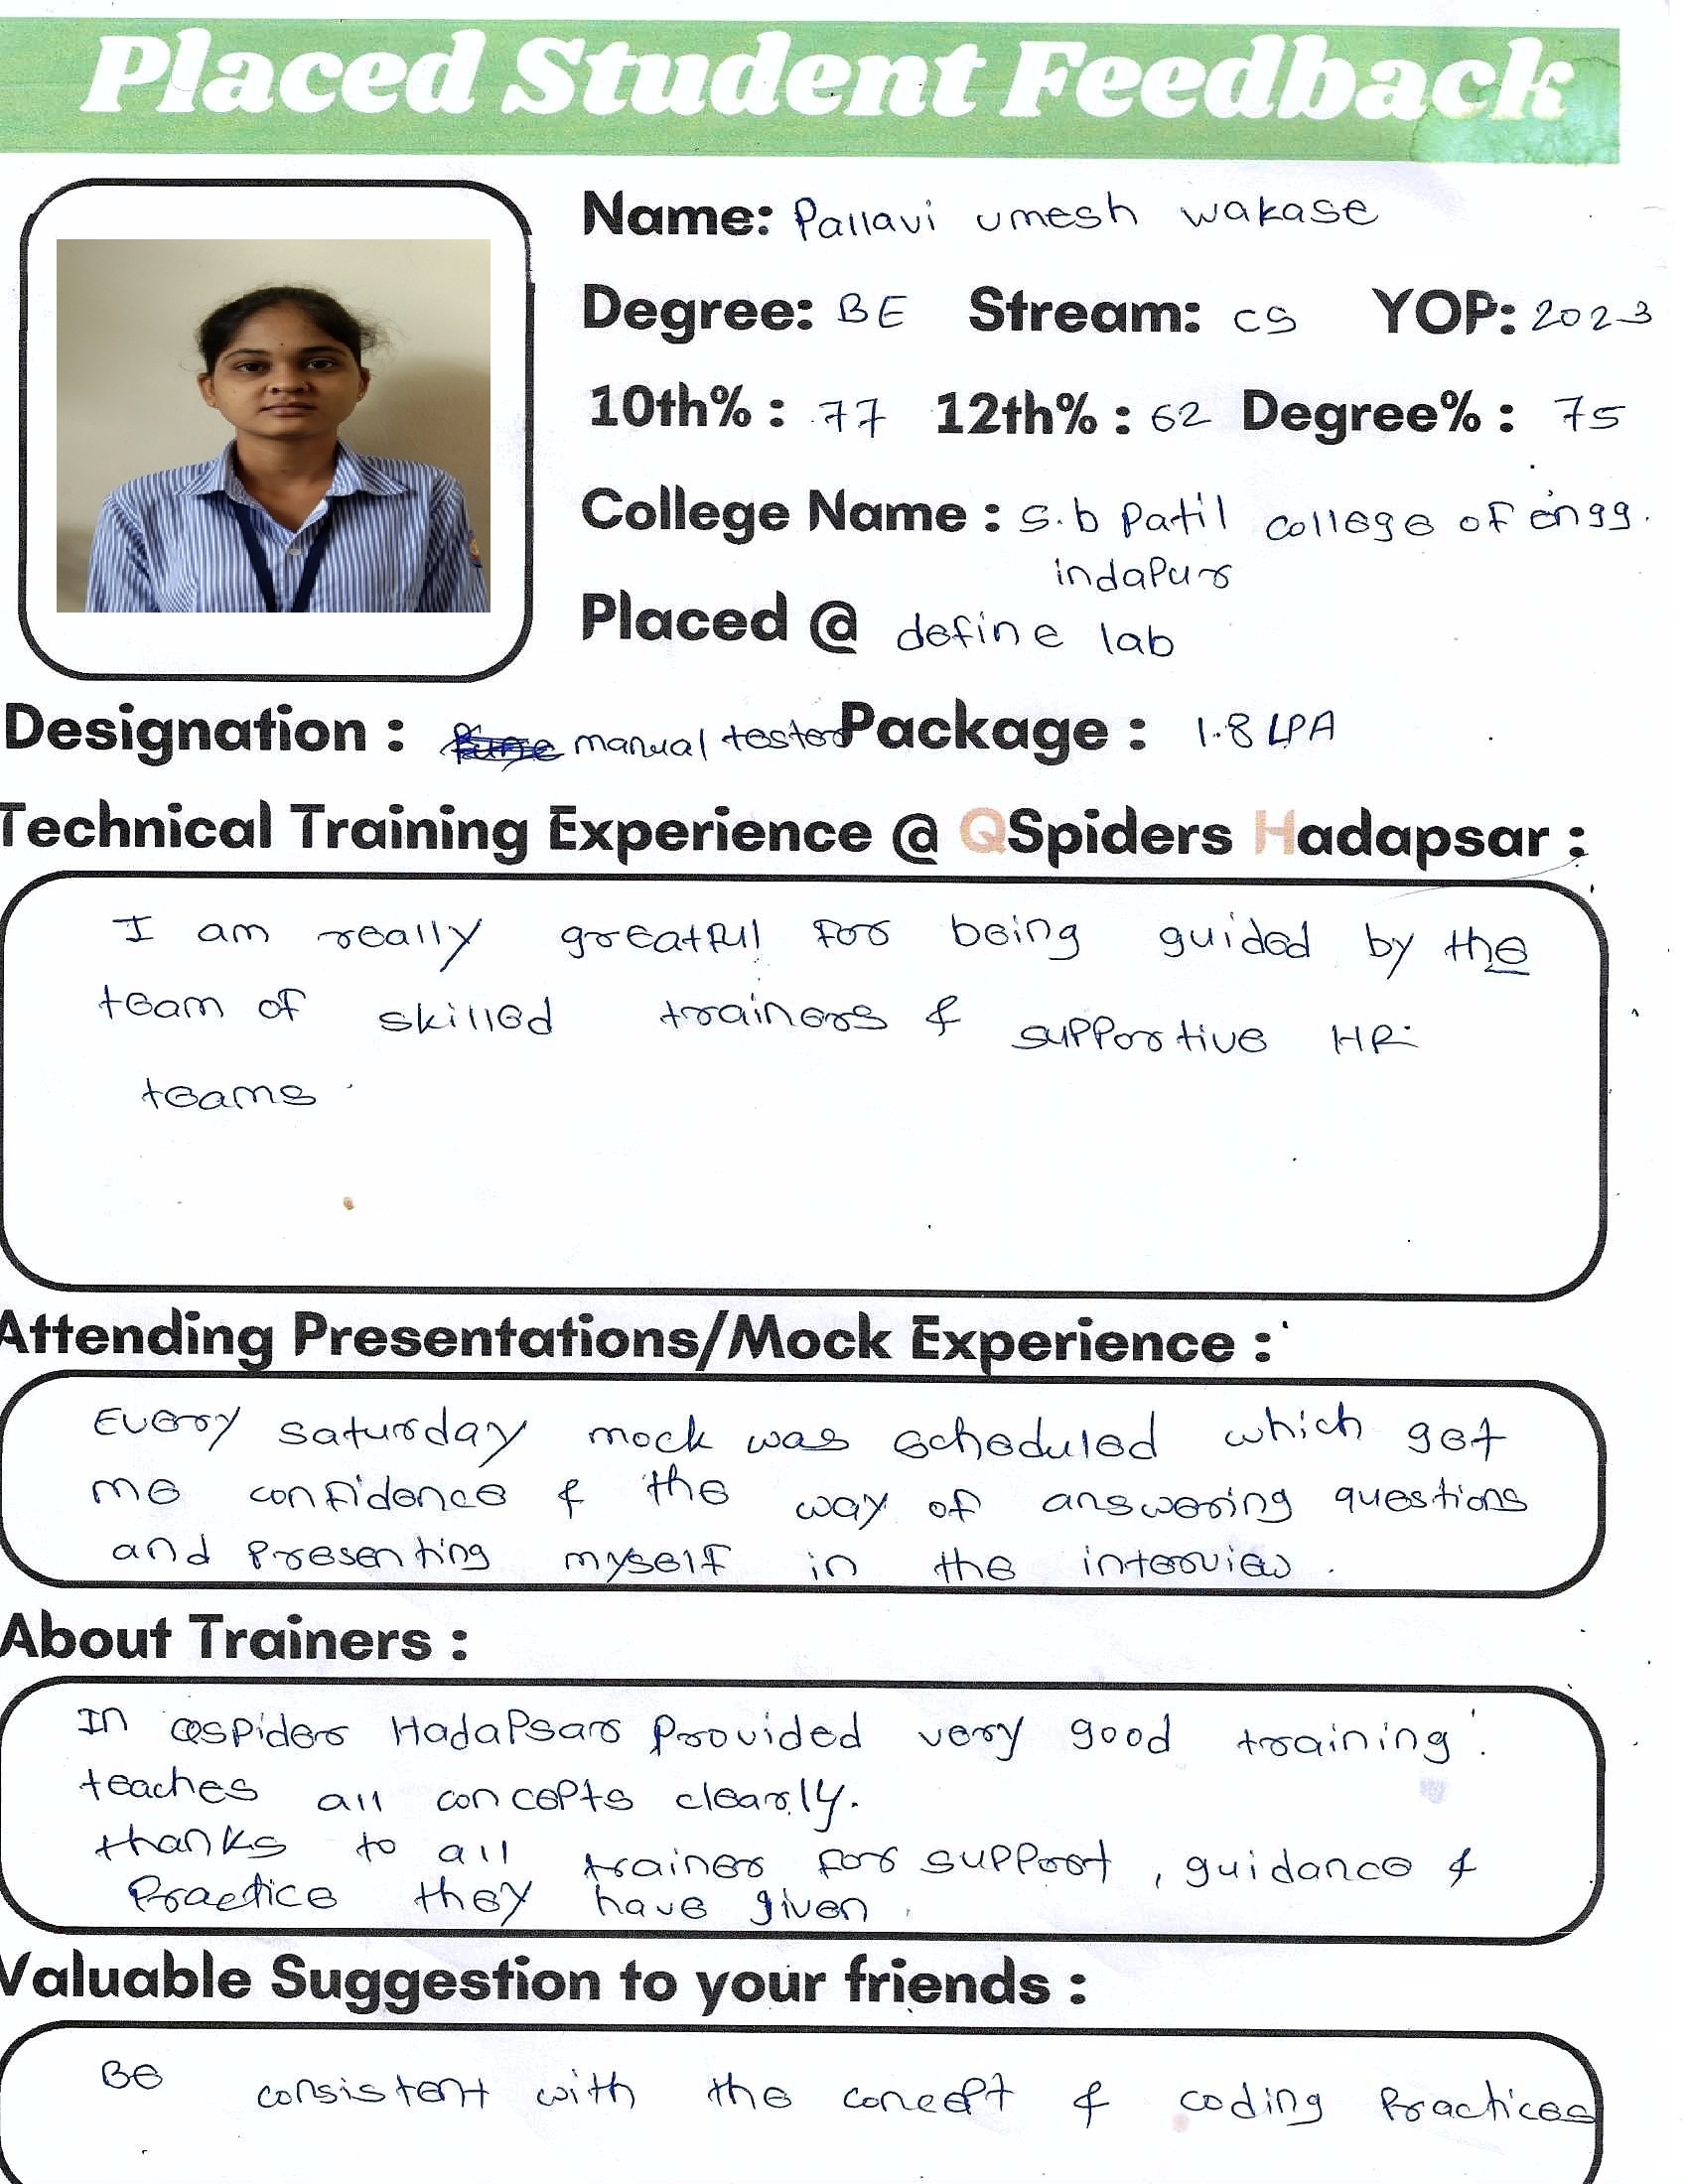 Placed Student Feedback
Name: Pallavi umesh wakase
Degree: BE Stream: CS YOP: 2023
10th% : 77 12th% : 62 Degree% : 75
College Name : S.b Patil college of engg.
indapur
Placed @ define lab
Designation : manual tester Package : 1.8 LPA
Technical Training Experience @ QSpiders Hadapsar :
I am really greatful for being guided by the
team of skilled trainers & supportive HR
teams.
Attending Presentations/Mock Experience :
Every saturday mock was scheduled which get
me confidence & the way of answering questions
and Presenting myself in the interview.
About Trainers :
In Qspider Hadapsar Provided very good training.
teaches all concepts clearly.
thanks to all trainer for support, guidance &
Practice they have given.
Valuable Suggestion to your friends :
Be consistent with the concept & coding Practices